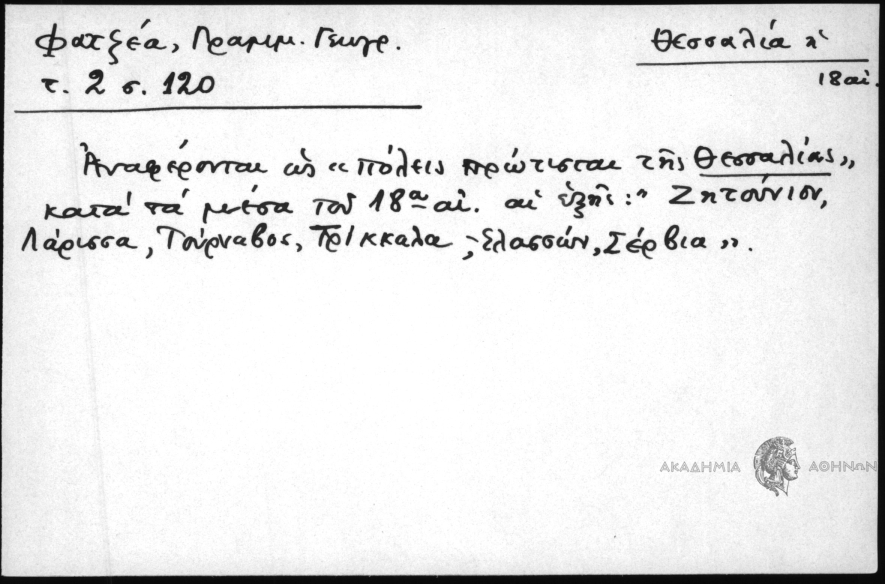 Φατζέα, Γραμμ. Γεωγρ.
τ. 2 σ. 120
Θεσσαλία
18 αἰ.
Ἀναφέρονται ὡς «πόλεις πρώτισται τῆς Θεσσαλίας»
κατά τά μέσα τοῦ 18ου αἰ. αἱ ἑξῆς: " Ζητούνιον,
Λάρισσα, Τούρναβος, Τρίκκαλα, Ἐλασσών, Σέρβια".
ΑΚΑΔΗΜΙΑ ΑΘΗΝΩΝ